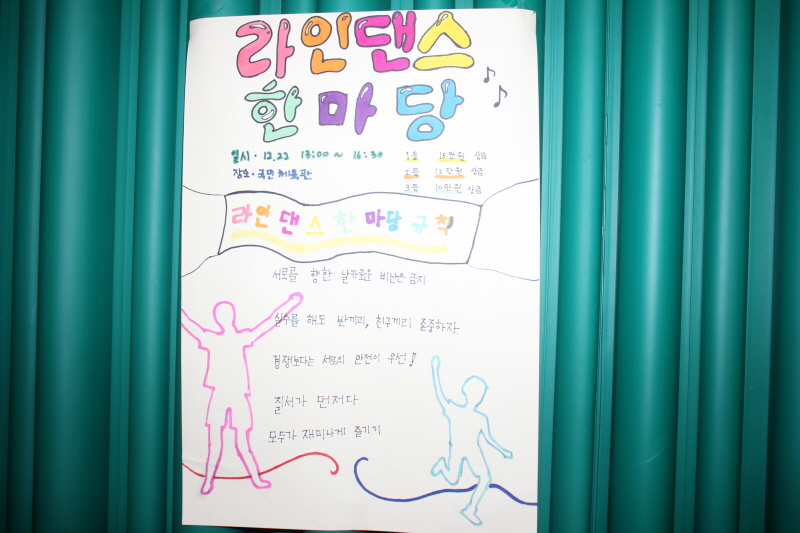 라인댄스
한마당
일시·12.22 13:00~ 16:30
장소·국민체육관
1등 15만원 상금
2등 12만원 상금
3등 10만원 상금
라인댄스 한마당 규칙
서로를 행한 날카로운 비난은 금지
실수를 해도 반끼리, 친구끼리 존중하자.
경쟁보다는 서로의 안전이 우선!
질서가 먼저다
모두가 재미나게 즐기기